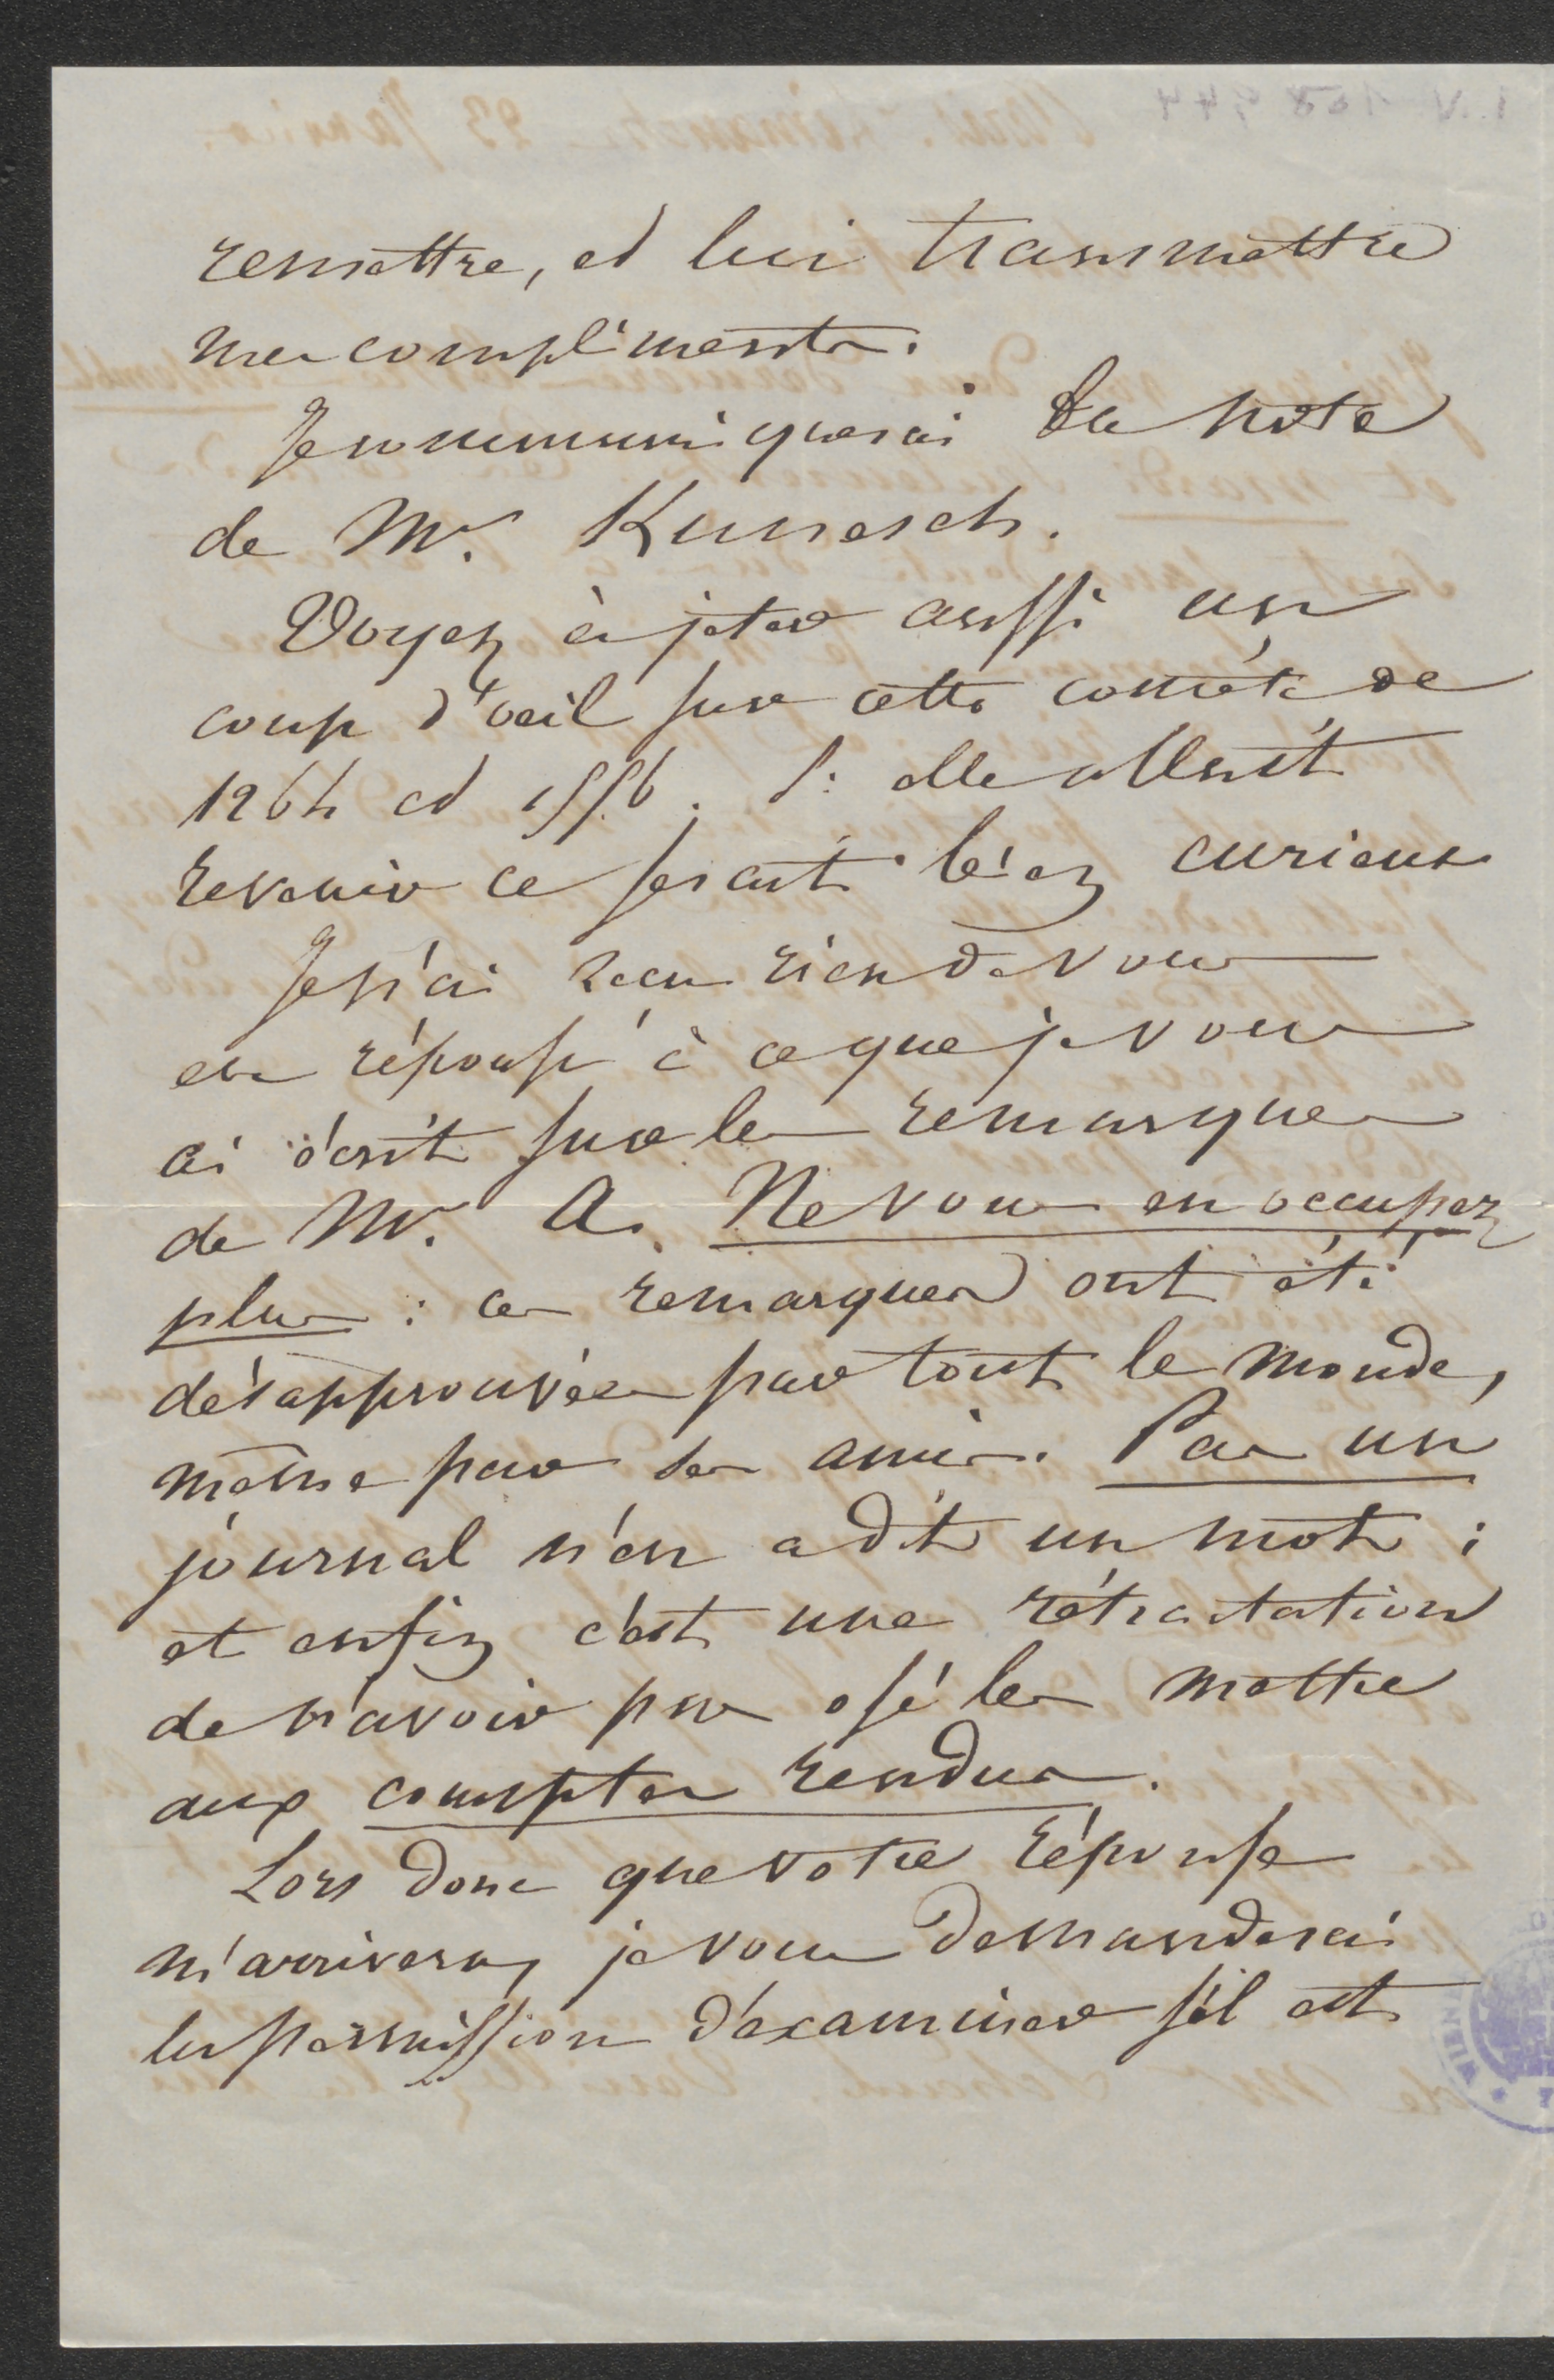 remettre, et lui transmettre
mes compliments.
Je communiquerai la note
de Mr. Kunesch.
Voyez à jeter aussi un
coup d'oeil sur cette comète de
1264 et 1556. Si elle allait
revenir ce serait bien curieux
Je n'ai reçu rien de vous
en réponse à ce que je vous
ai écrit sur les remarques
de Mr. A. Ne vous en occupez
plus : ces remarques ont été
désapprouvées par tout le monde,
même par ses amis. Pas un
journal n'en a dit un mot ;
et enfin c'est une rétractation
de n'avoir pas osé les mettre
aux comptes rendus.
Lors donc que votre réponse
m'arrivera, je vous demanderai
la permission d'examiner s'il est